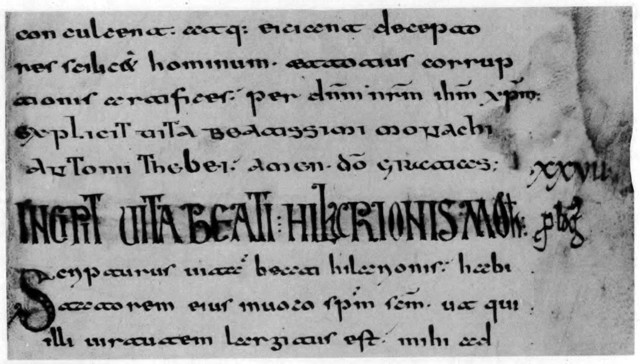 conculcent· atq: eiciant decepto
res scilicet hominum· et totius corrup
tionis artifices· per dnm nrm ihm xpm·
explicit uita beatissimi monachi
antonii thebei· amen· do gratias· xxvii
INCPIT UITA BEATI· HILARIONIS·MO
Scripturus uitã beati hilarionis· habi
tatorem eius inuoco spm scm· ut qui
illi uirtutem largitus est· mihi ad